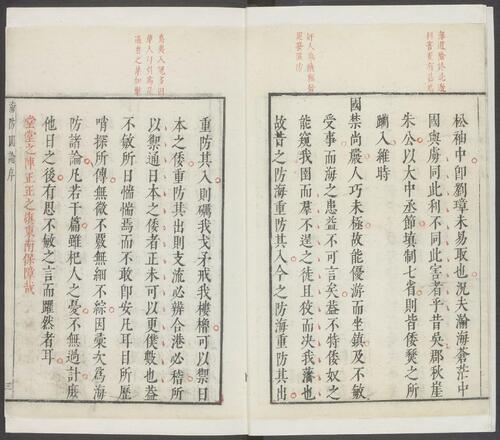 松袖中卽劉璋未易取也況夫瀚海蒼茫中
國與虜同此利不同此害者乎昔吳郡秋崖
朱公以大中丞節填制七省則皆倭燹之所
躪入維時
國禁尚嚴人巧未極故能優游而坐鎮及不敏
受事而海之患益不可言矣蓋不特倭奴之
能窺我圉而羣不逞之徒且狡而決我藩也
故昔之防海重防其入今之防海重防其出
重防其入則礪我戈矛戒我樓櫓可以禦日
本之倭重防其出則支流必辨合港必稽所
以禦通日本之倭者正未可以更僕數也蓋
不敏所日惴惴焉而不敢卽安凡耳目所歷
哨探所傳無微不覈無細不綜因彙次爲海
防諸論凡若干篇雖杞人之憂不無過計庶
他日之後有思不敏之言而躍然者耳
堂堂之陣正正之旗東南保障哉
海防圖論序
三